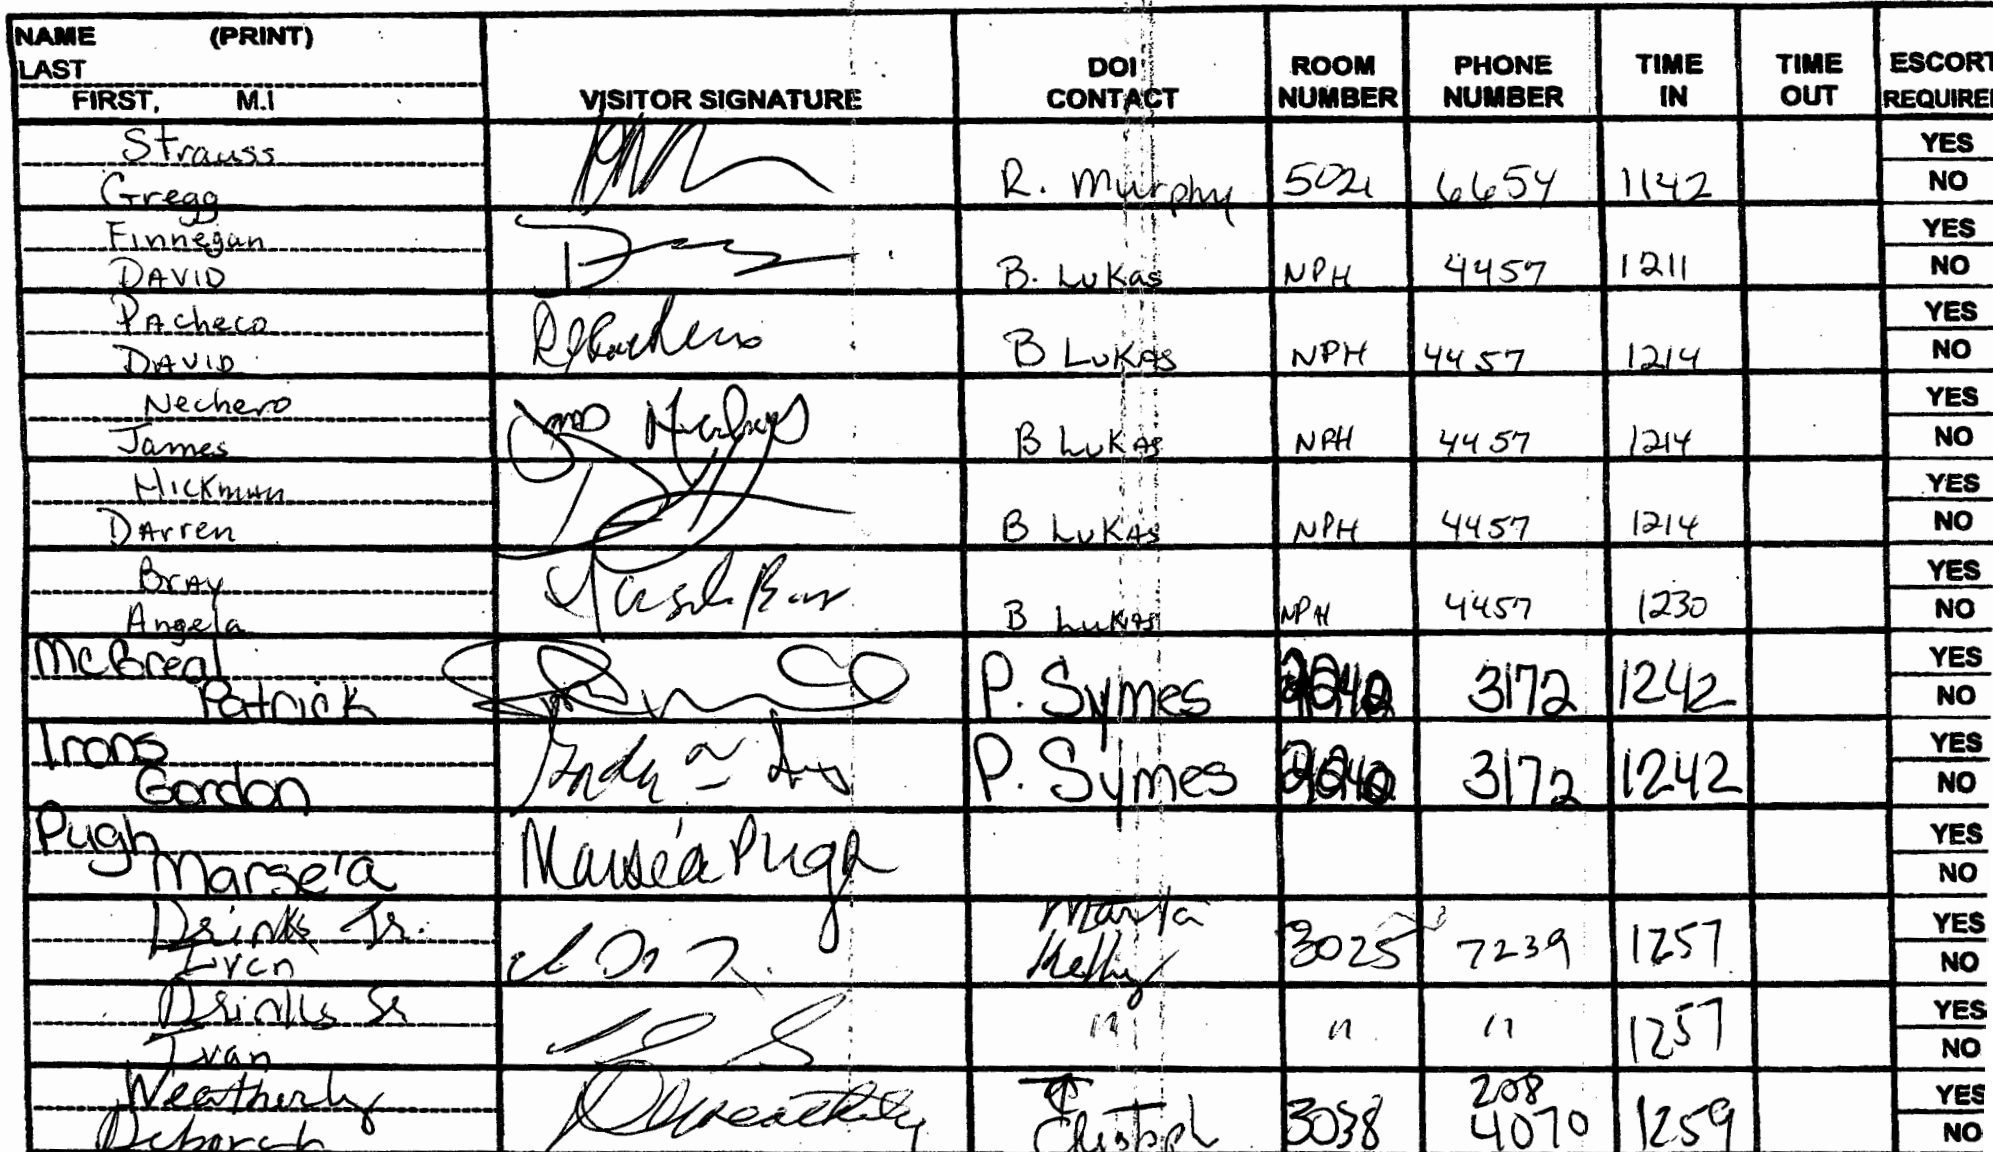 NAME (PRINT)
LAST
FIRST, M.I
VISITOR SIGNATURE
DOI CONTACT
ROOM NUMBER
PHONE NUMBER
TIME IN
TIME OUT
ESCORT REQUIRE
Strauss
Gregg
R. Murphy 5021 6654 1142 YES NO
Finnegan
DAVID
B. LuKas NPH 4457 1211 YES NO
PAcheco
DAVID
B LuKAs NPH 4457 1214 YES NO
Nechero
James
B LuKAs NPH 4457 1214 YES NO
HICKmAn
DArren
B LuKAs NPH 4457 1214 YES NO
BrAy
Angela
B LuKAs NPH 4457 1230 YES NO
McBreal
Patrick
P. Symes 3172 1242 YES NO
Irons
Gordon
P. Symes 3172 1242 YES NO
Pugh
Marse'a
Marséa Pugh YES NO
Drinks Jr.
Ivan
Marla Kelly 3025 7239 1257 YES NO
Drinks Sr
Ivan
" " " 1257 YES NO
Weatherly
Deborah
DWeatherly 3038 208 4070 1259 YES NO